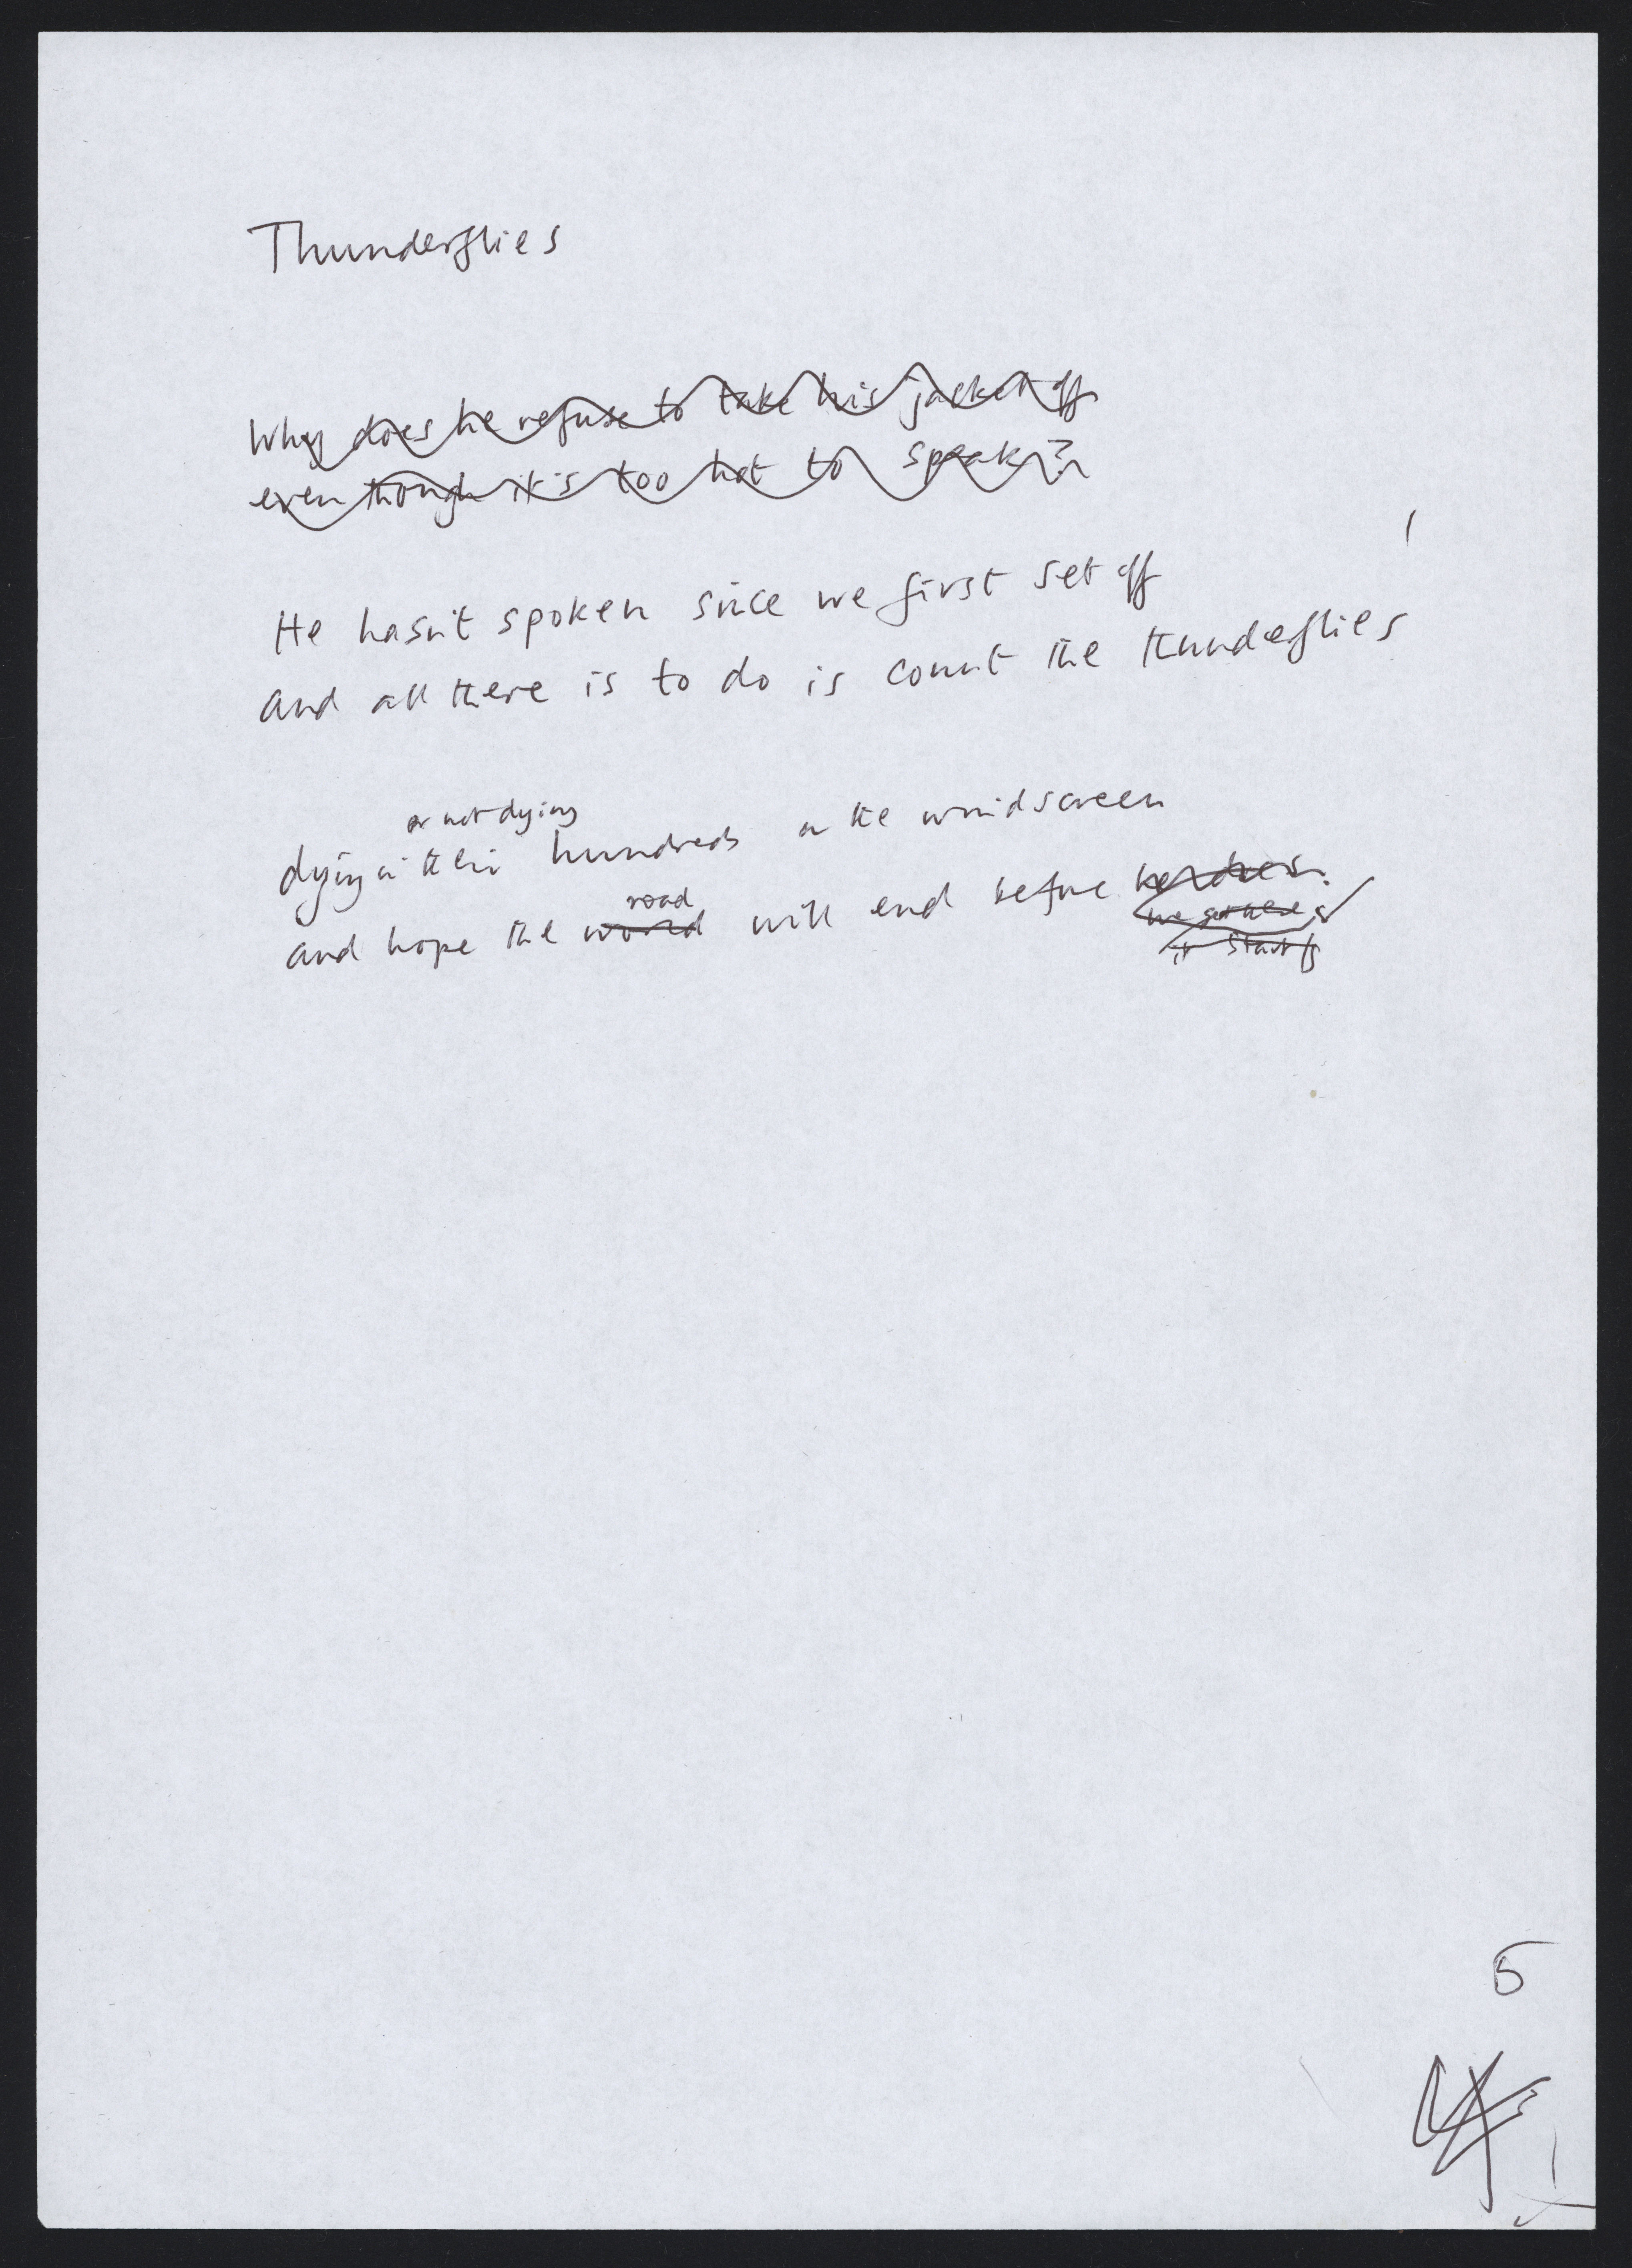 Thunderflies
Why does he refuse to take his jacket off
even though it's too hot to speak?
He hasn't spoken since we first set off
and all there is to do is count the thunderflies
or not dying
dying in their hundreds on the windscreen
road
and hope the word will end before
we get there
it starts
5